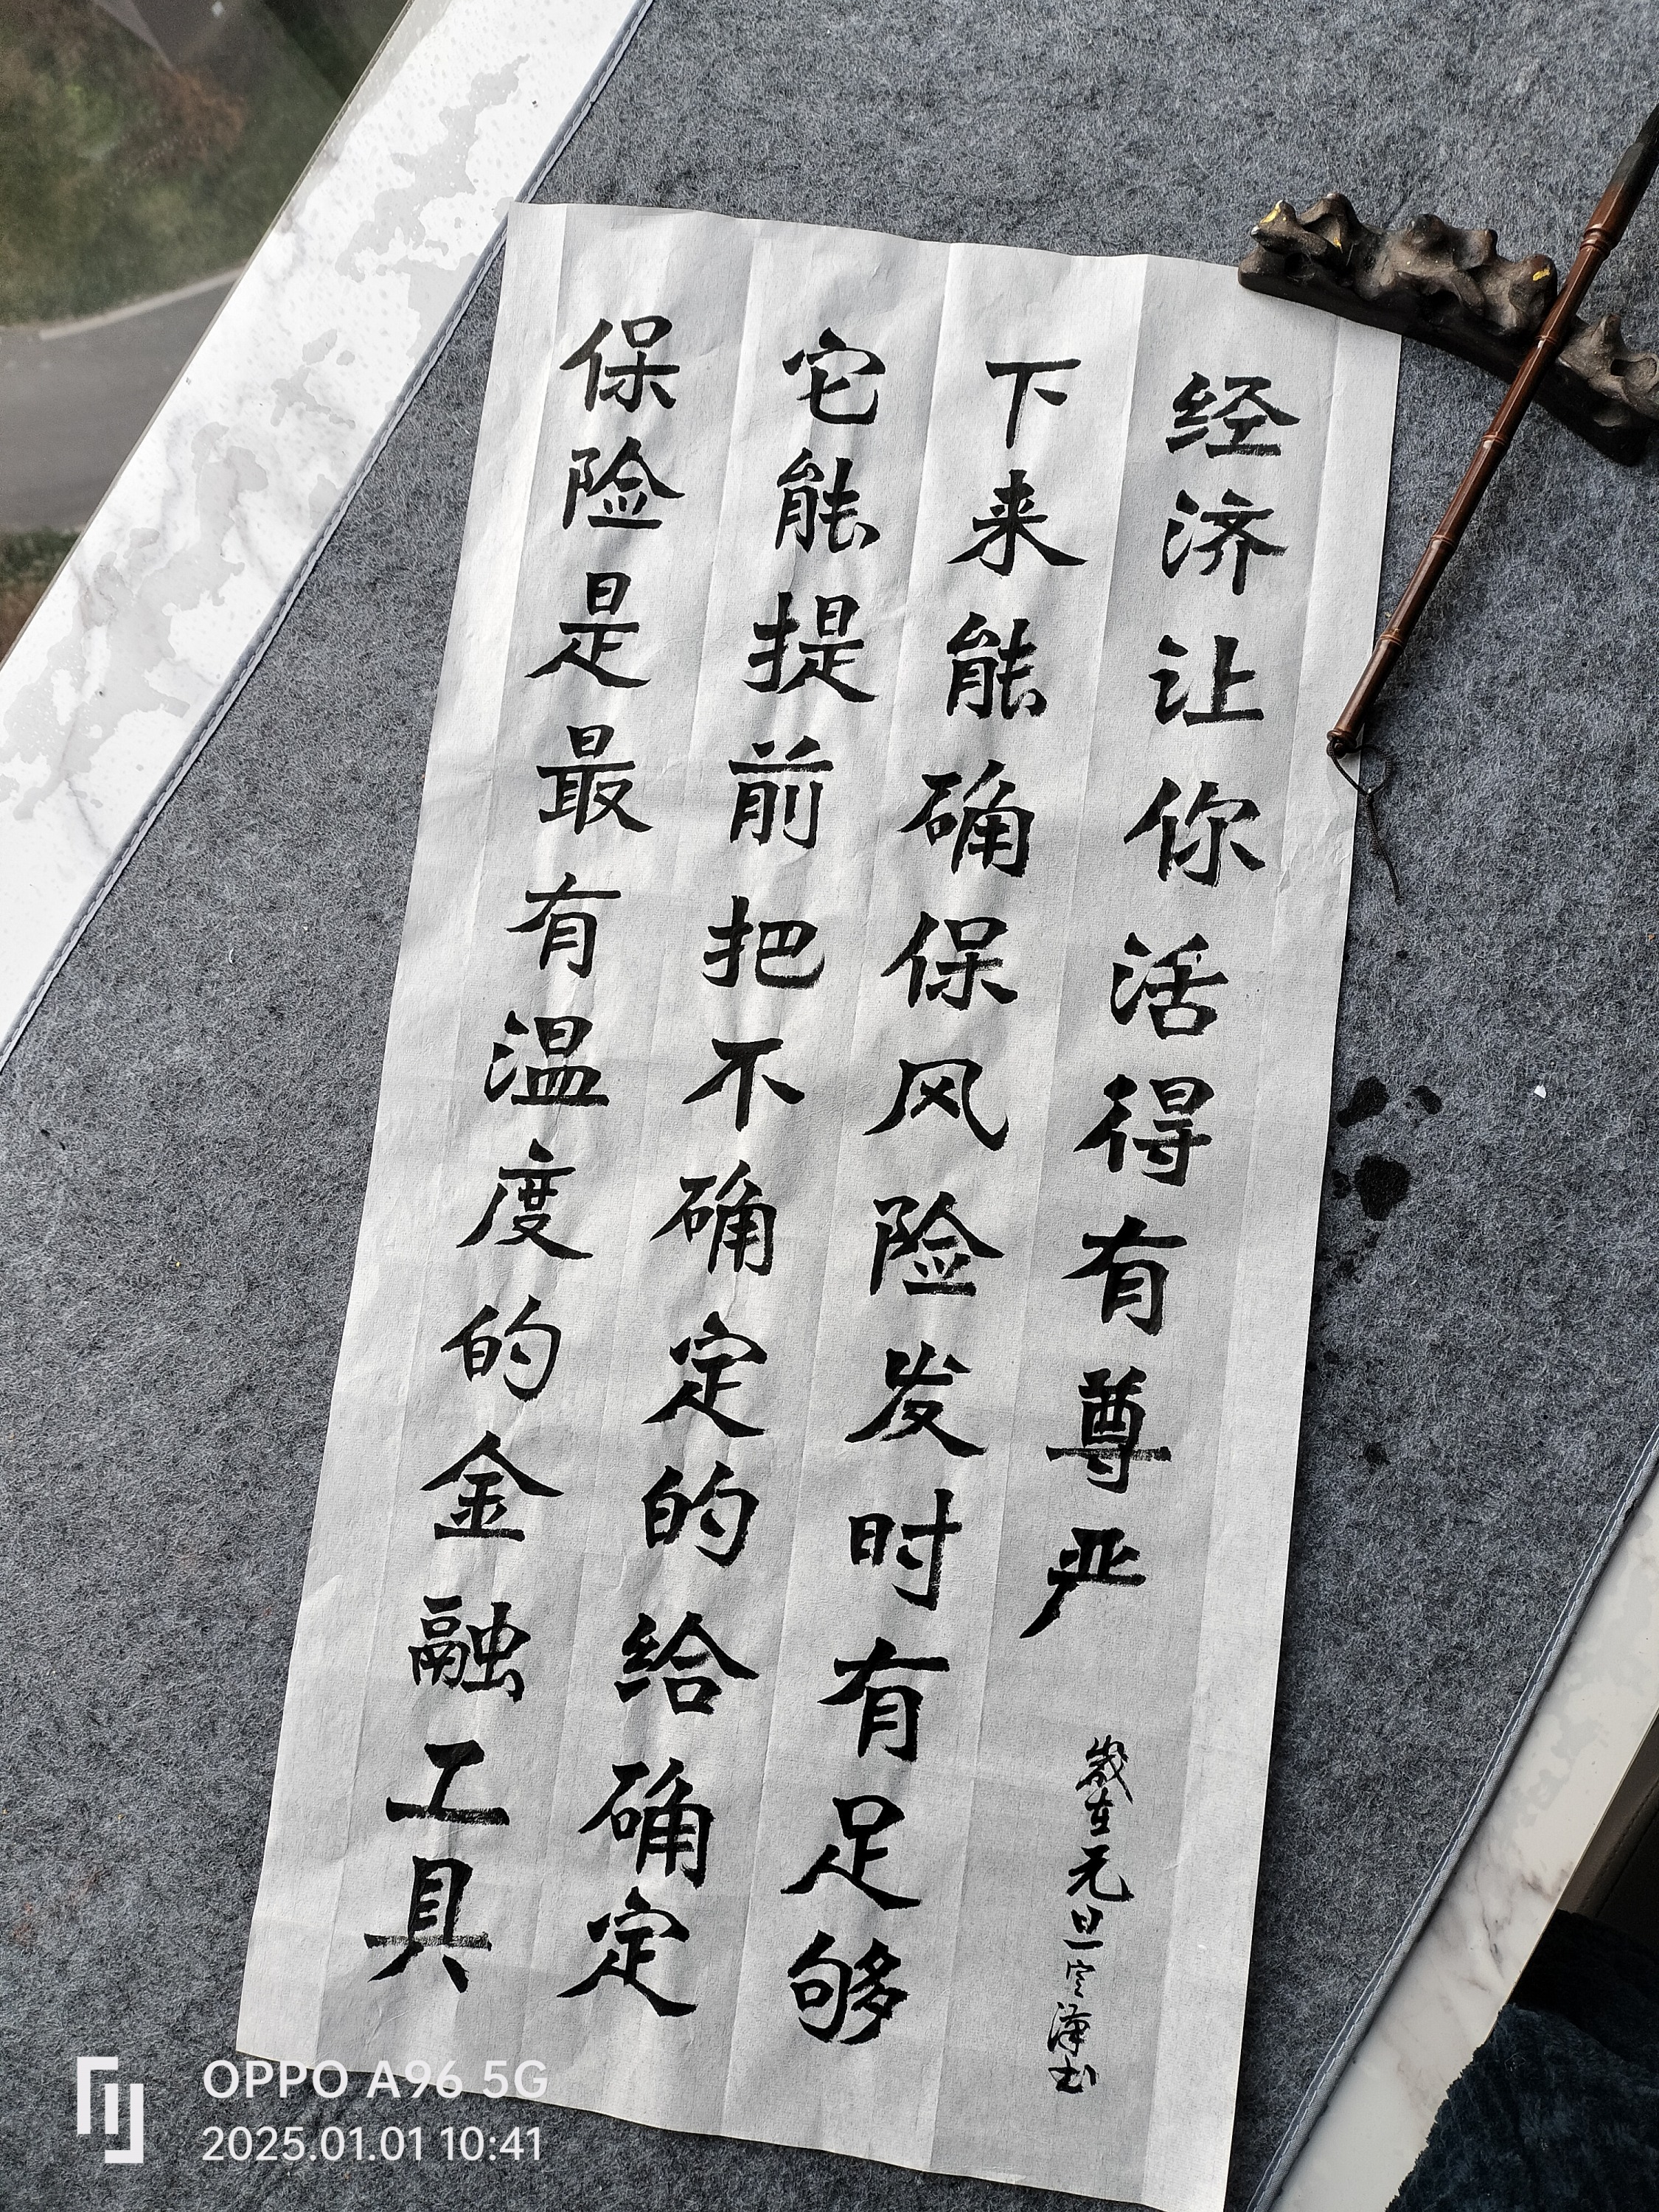 保险是最有温度的金融工具
它能提前把不确定的给确定
下来能确保风险发时有足够
经济让你活得有尊严
歲在元旦
OPPO A96 5G
2025.01.01 10:41